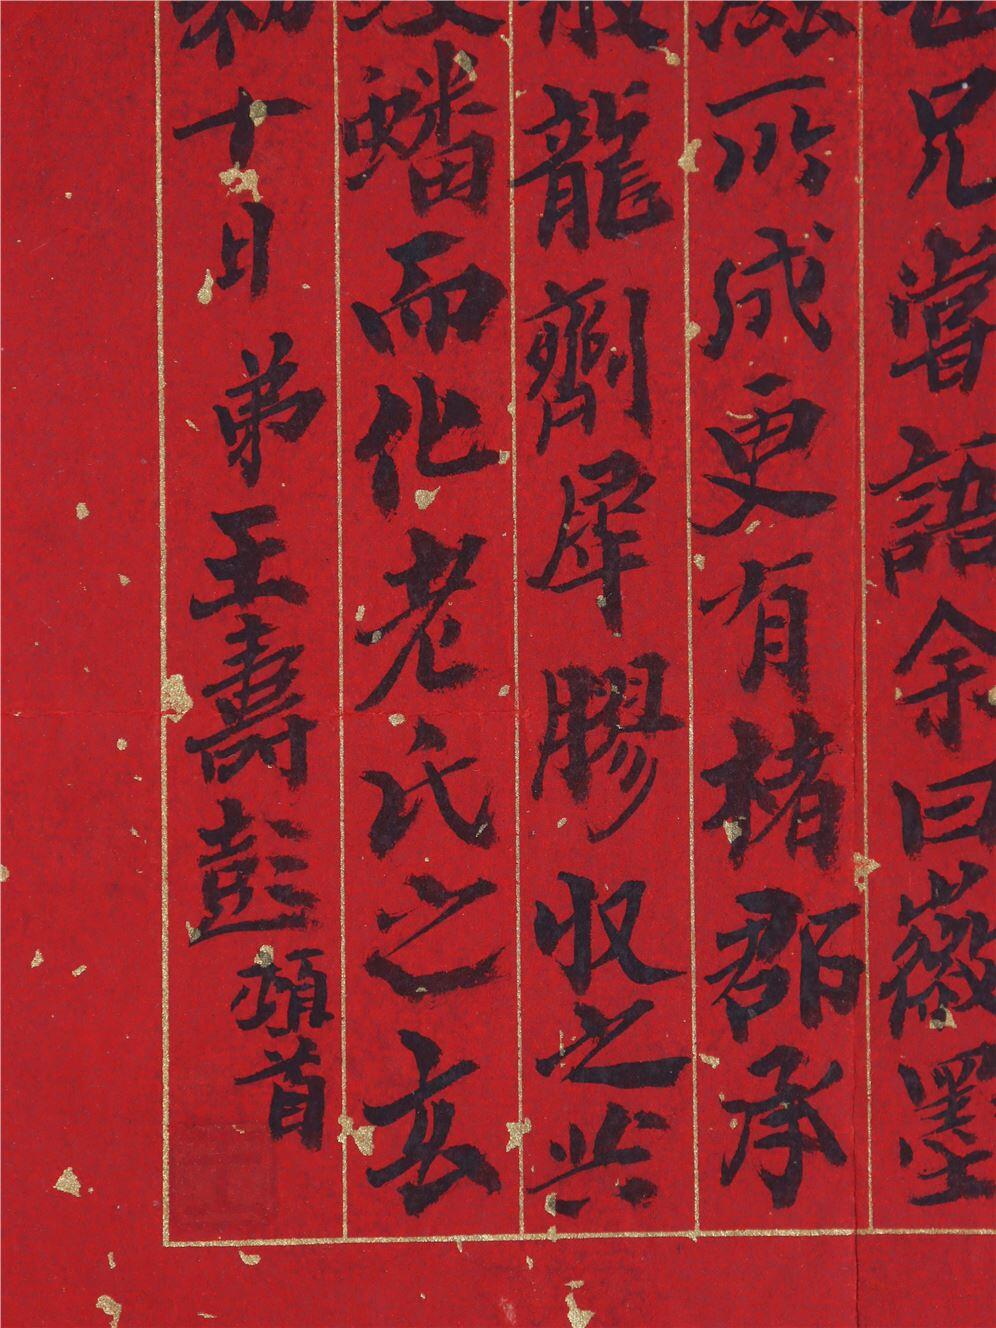 兄嘗語余曰徽墨
所成更有楮郡承
龍劑犀膠收之共
蟠而化老氏之玄
初十日弟王壽彭頓首